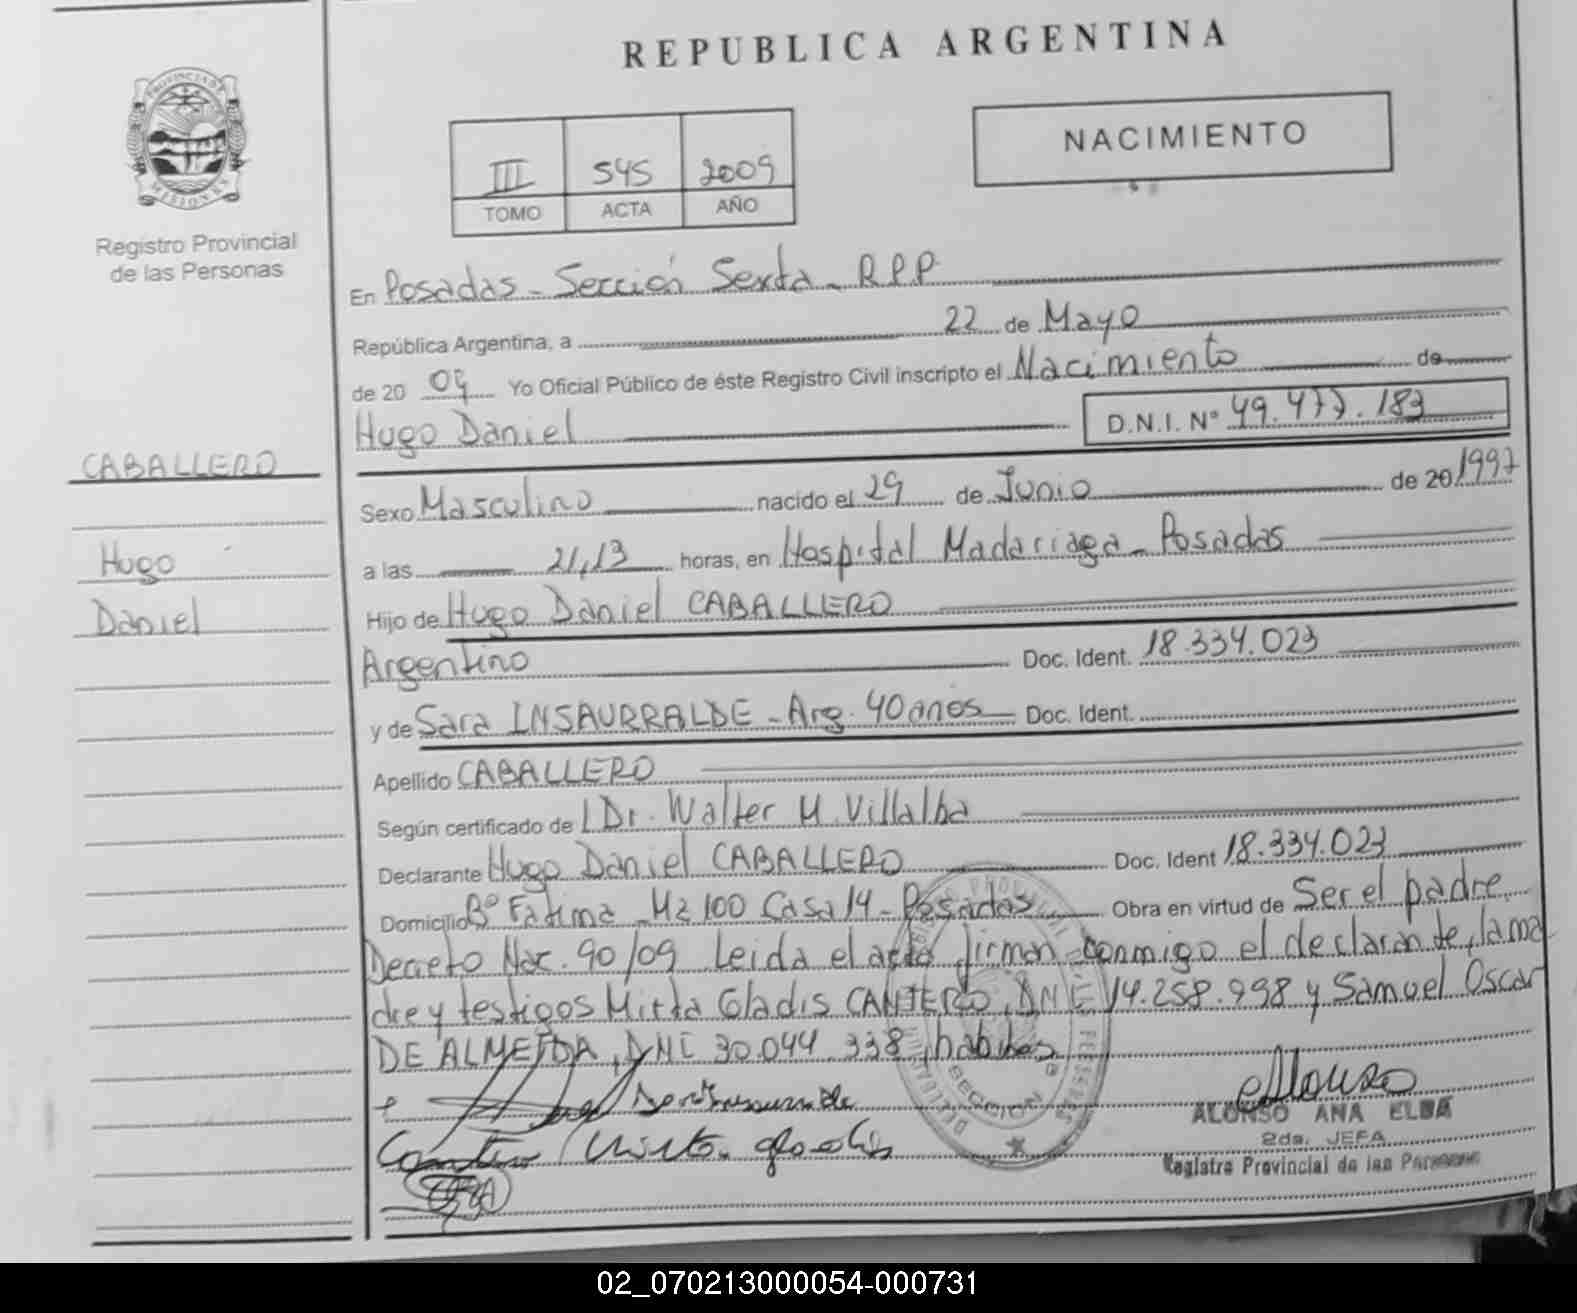 REPUBLICA ARGENTINA
PROVINCIA DE
MISIONES
Registro Provincial
de las Personas
III 545 2009
TOMO ACTA AÑO
NACIMIENTO
En Posadas - Sección Sexta - R.P.P
República Argentina, a 22 de Mayo
de 20 09 Yo Oficial Público de éste Registro Civil inscripto el Nacimiento de
Hugo Daniel D.N.I. Nº 49.477.183
CABALLERO
Hugo
Daniel
Sexo Masculino nacido el 29 de Junio de 20 1997
a las 21,13 horas, en Hospital Madariaga - Posadas
Hijo de Hugo Daniel CABALLERO
Argentino Doc. Ident. 18.334.023
y de Sara INSAURRALDE - Arg. 40 años Doc. Ident.
Apellido CABALLERO
Según certificado de l Dr. Walter M. Villalba
Declarante Hugo Daniel CABALLERO Doc. Ident 18.334.023
Domicilio Bº Fatima - Mz 100 Casa 14 - Posadas Obra en virtud de Ser el padre
Decreto Nac. 90/09 Leida el acta firman conmigo el declarante, la ma
dre y testigos Mirta Gladis CANTERO, DNI 14.258.998 y Samuel Oscar
DE ALMEIDA, DNI 30.044.338, habiles
Cantero Mirta Gladis
ALONSO ANA ELBA
2da. JEFA
Registro Provincial de las Personas
SECCION
02_070213000054-000731